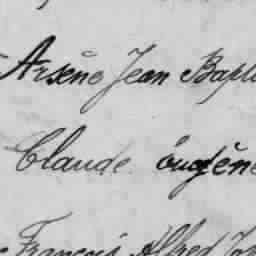 Arsène Jean Bapti
Claude eugène
François Alfred Jo